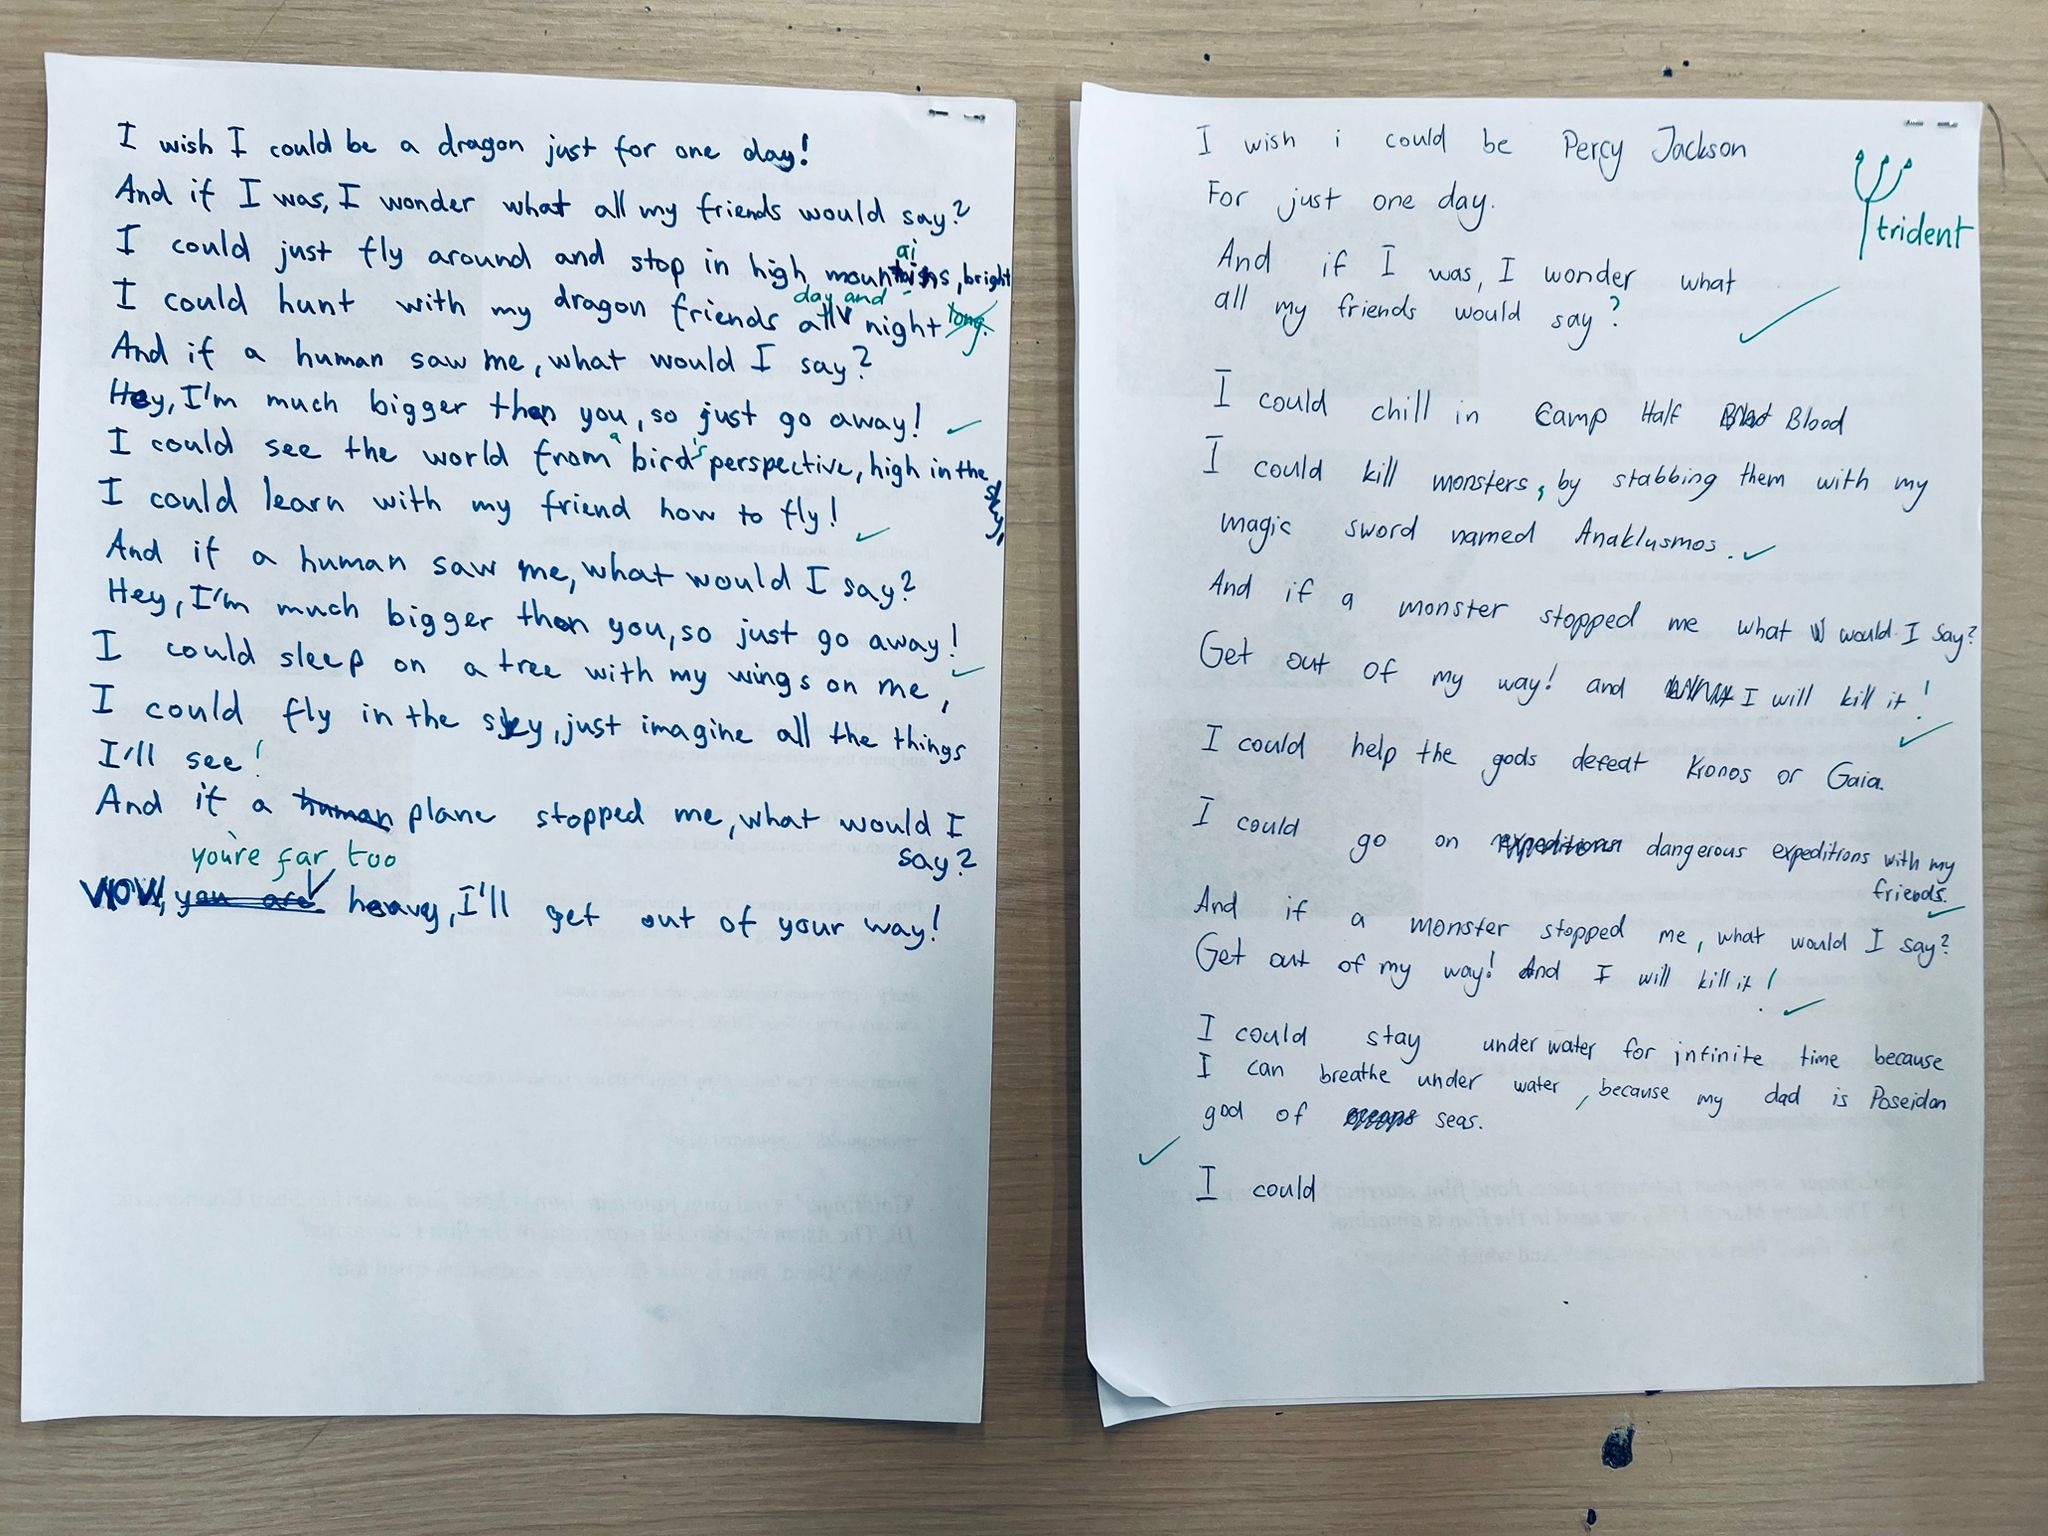 I wish I could be a dragon just for one day!
And if I was, I wonder what all my friends would say?
I could just fly around and stop in high mountains, bright
ai
I could hunt with my dragon friends all day and night long.
And if a human saw me, what would I say?
Hey, I'm much bigger than you, so just go away!
I could see the world from a bird's perspective, high in the sky,
I could learn with my friend how to fly!
And if a human saw me, what would I say?
Hey, I'm much bigger than you, so just go away!
I could sleep on a tree with my wings on me,
I could fly in the sky, just imagine all the things
I'll see!
And if a human plane stopped me, what would I
say?
you're far too
WOW, you are heavy, I'll get out of your way!
I wish i could be Percy Jackson
For just one day.
trident
And if I was, I wonder what
all my friends would say?
I could chill in Camp Half Blood
I could kill monsters, by stabbing them with my
magic sword named Anaklusmos.
And if a monster stopped me what would I say?
Get out of my way! and I will kill it!
I could help the gods defeat Kronos or Gaia.
I could go on expeditions dangerous expeditions with my
friends.
And if a monster stopped me, what would I say?
Get out of my way! And I will kill it!
I could stay under water for infinite time because
I can breathe under water, because my dad is Poseidon
god of seas.
I could